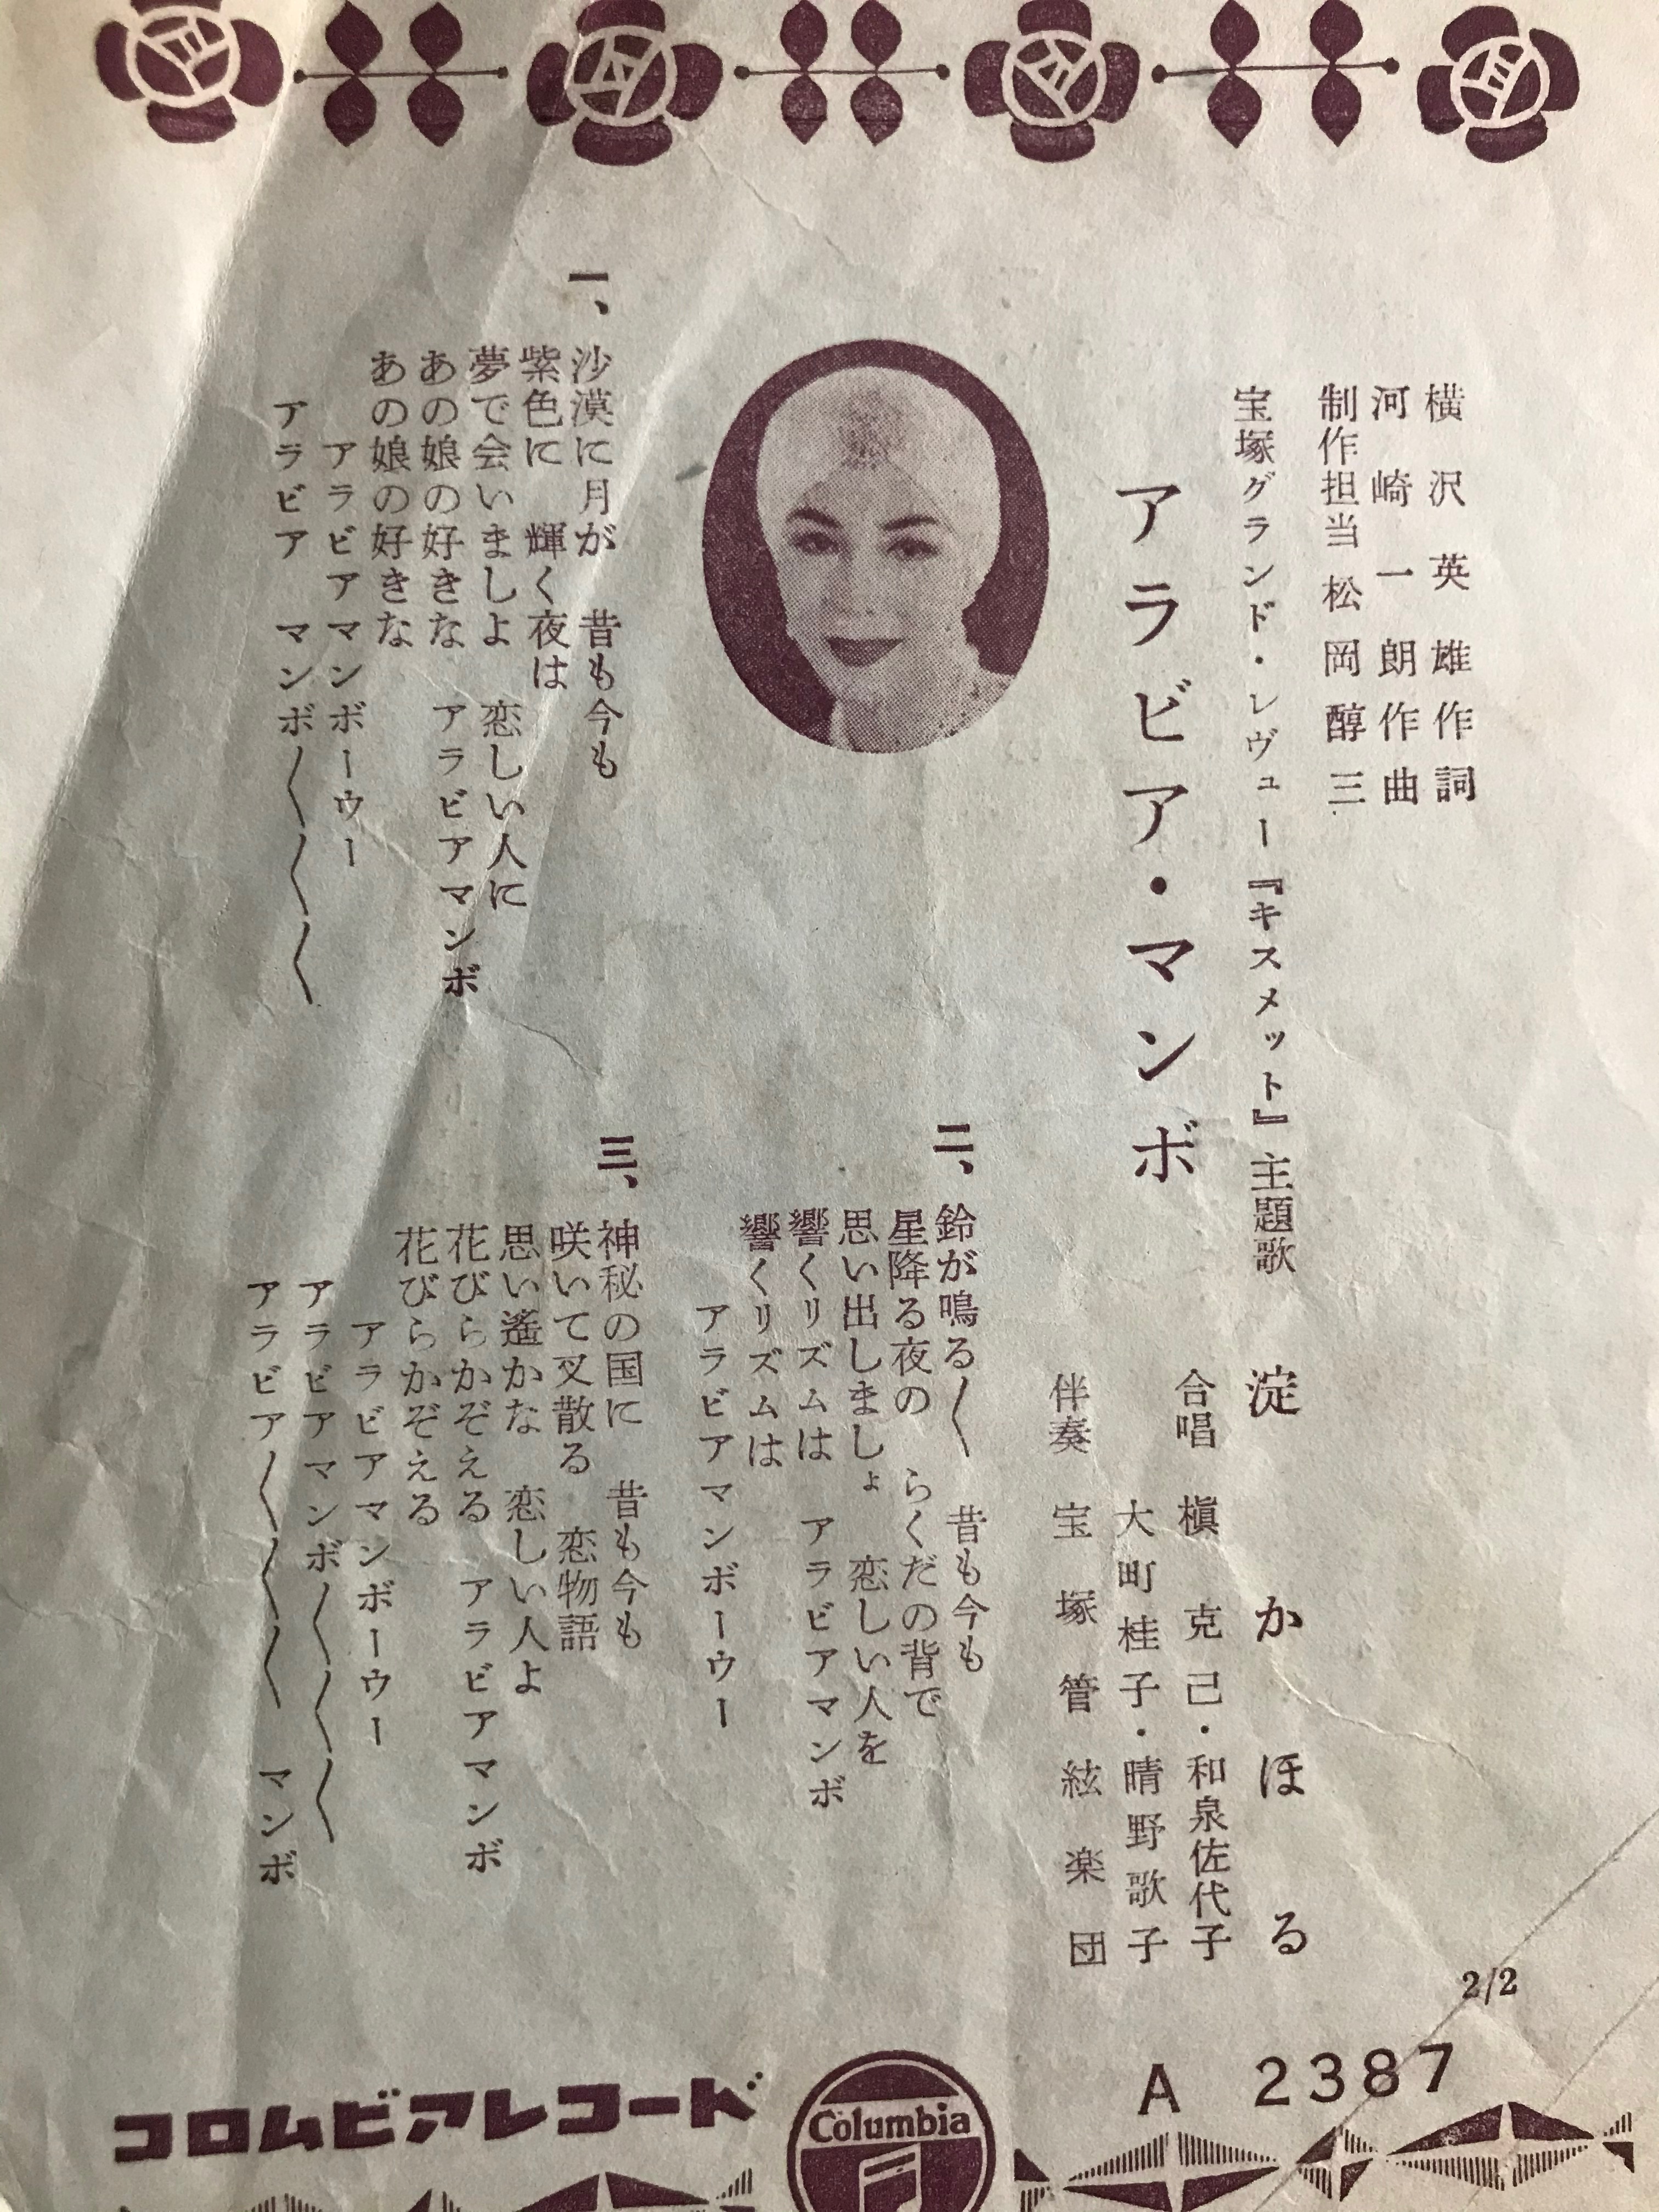 横沢英雄作詞
河崎一朗作曲
制作担当 松岡醇三
宝塚グランド・レヴュー『キスメット』主題歌
アラビア・マンボ
淀かほる
合唱 槇克己・和泉佐代子
大町桂子・晴野歌子
伴奏 宝塚管絃楽団
一、
沙漠に月が 昔も今も
紫色に 輝く夜は
夢で会いましよ 恋しい人に
あの娘の好きな アラビアマンボ
あの娘の好きな
アラビアマンボーウー
アラビア マンボ〱〱〱
二、
鈴が鳴る〱 昔も今も
星降る夜の らくだの背で
思い出しましょ 恋しい人を
響くリズムは アラビアマンボ
響くリズムは
アラビアマンボーウー
三、
神秘の国に 昔も今も
咲いて又散る 恋物語
思い遙かな 恋しい人よ
花びらかぞえる アラビアマンボ
花びらかぞえる
アラビアマンボーウー
アラビアマンボ〱〱〱
アラビア〱〱〱 マンボ
2/2
A 2387
コロムビアレコード
Columbia